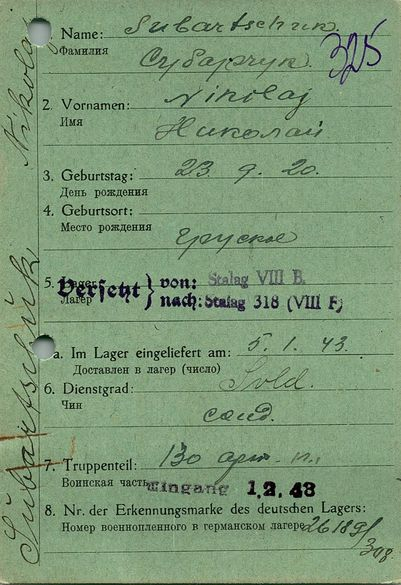 Name: Subartschuk
Фамилия
Субарчук.
325
2. Vornamen: Nikolaj
Имя
Николай
3. Geburtstag: 23. 9. 20.
День рождения
4. Geburtsort:
Место рождения
5. Lager
Лагер
Versetzt } von: Stalag VIII B.
nach: Stalag 318 (VIII F)
a. Im Lager eingeliefert am: 5. 1. 43.
Доставлен в лагер (число)
6. Dienstgrad: Sold.
Чин
солд.
7. Truppenteil: 130 арт. п.
Воинская часть
Eingang 1.2.43
8. Nr. der Erkennungsmarke des deutschen Lagers:
Номер военнопленного в германском лагере
Subartschuk Nikolaj